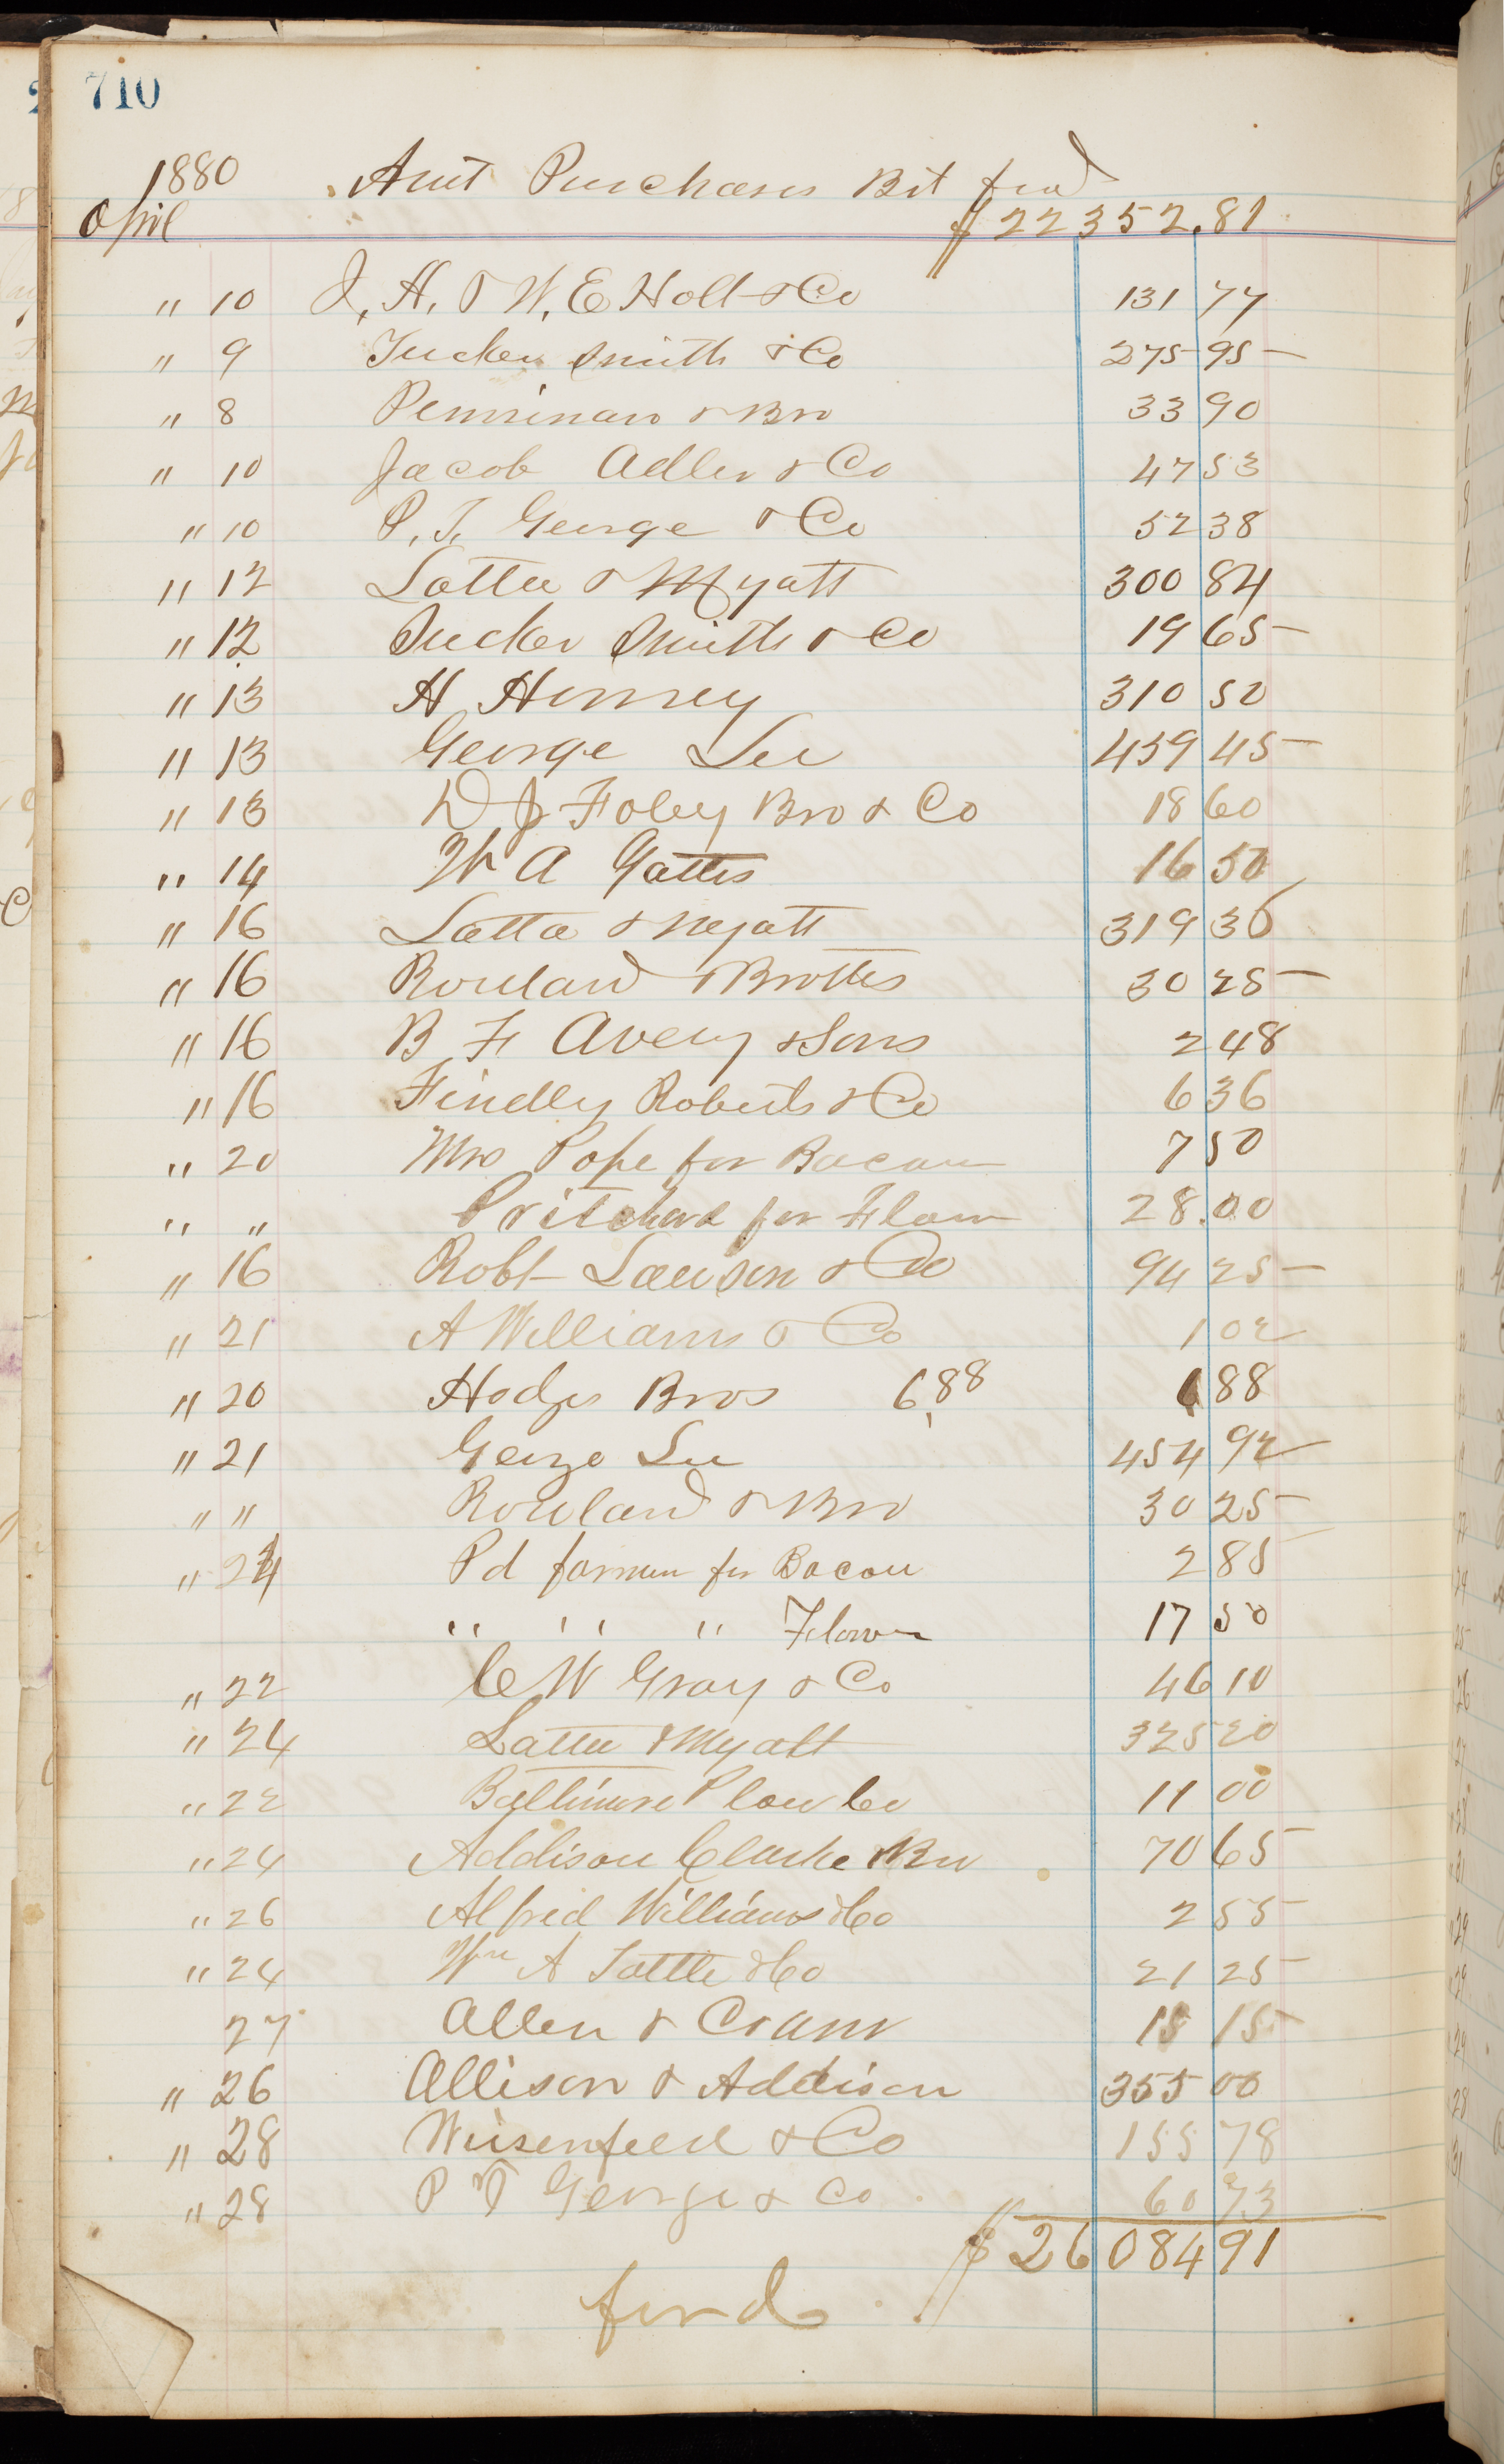 710
1880 Amt Purchases Bt ford
April $22352.81
" 10 J. H. & W. E Holt & Co 131 77
" 9 Tucker Smith & Co 275 95
" 8 Penniman & Bro 33 90
" 10 Jacob Adler & Co 47 53
" 10 P. T. George & Co 52 38
" 12 Latta & Myatt 300 84
" 12 Tucker Smith & Co 19 65
" 13 H Henney 310 50
" 13 George Lee 459 45
" 13 D J Foley Bro & Co 18 60
" 14 W A Gattis 16 50
" 16 Latta & Myatt 319 36
" 16 Rowland & Brothers 30 25
" 16 B F Avery & Sons 2 48
" 16 Findley Roberts & Co 6 36
" 20 Mrs Pope for Bacon 7 50
" " Pritchard for Flour 28.00
" 16 Robt Lawson & Co 94 25
" 21 A Williams & Co 1 02
" 20 Hodges Bros 6.88 6 88
" 21 George Lee 454 92
" " Rowland & Bro 30 25
" 24 Pd farmer for Bacon 2 85
" " " Flour 17 50
" 22 C W Gray & Co 46 10
" 24 Latta & Myatt 325 20
" 22 Baltimore Plow Co 11 00
" 24 Addison Clarke & Bro 70 65
" 26 Alfred Williams & Co 2 55
" 24 Wm A Tottle & Co 21 25
27 Allen & Cram 15 15
" 26 Allison & Addison 355 00
" 28 Wiesenfeld & Co 155 78
" 28 P T George & Co 60 73
$26084 91
ford